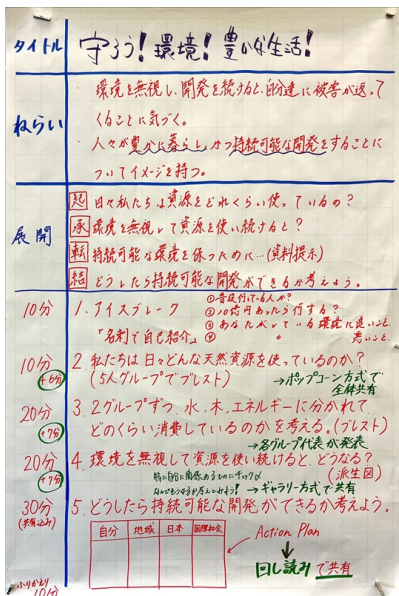 タイトル 守ろう!環境!豊かな生活!
ねらい
・環境を無視し、開発を続けると、自分達に被害が返って
くることに気づく。
・人々が豊かに暮らし、かつ持続可能な開発をすることに
ついてイメージを持つ。
展開
起 日々私たちは資源をどれくらい使っているの?
承 環境を無視して資源を使い続けると?
転 持続可能な環境を保つために…(資料提示)
結 どうしたら持続可能な開発ができるか考えよう。
10分 1.アイスブレーク
「名刺で自己紹介」
①普段何する人か?
②10億円あったら何する?
③あなたがしている環境に良いこと、
④ 〃 悪いこと。
10分 2.私たちは日々どんな天然資源を使っているのか?
+6分 (5人グループでブレスト)
→ポップコーン方式で
全体共有
20分 3.2グループずつ、水、木、エネルギーに分かれて
+7分 どのくらい消費しているのかを考える。(ブレスト)
→各グループ代表が発表
20分 4.環境を無視して資源を使い続けると、どうなる?
+7分 (派生図)
特に自分に関係あるものにチェック
→ギャラリー方式で共有
30分 5.どうしたら持続可能な開発ができるか考えよう。
(共有込み)
自分 地域 日本 国際社会
Action Plan
回し読みで共有
ふりかえり
10分